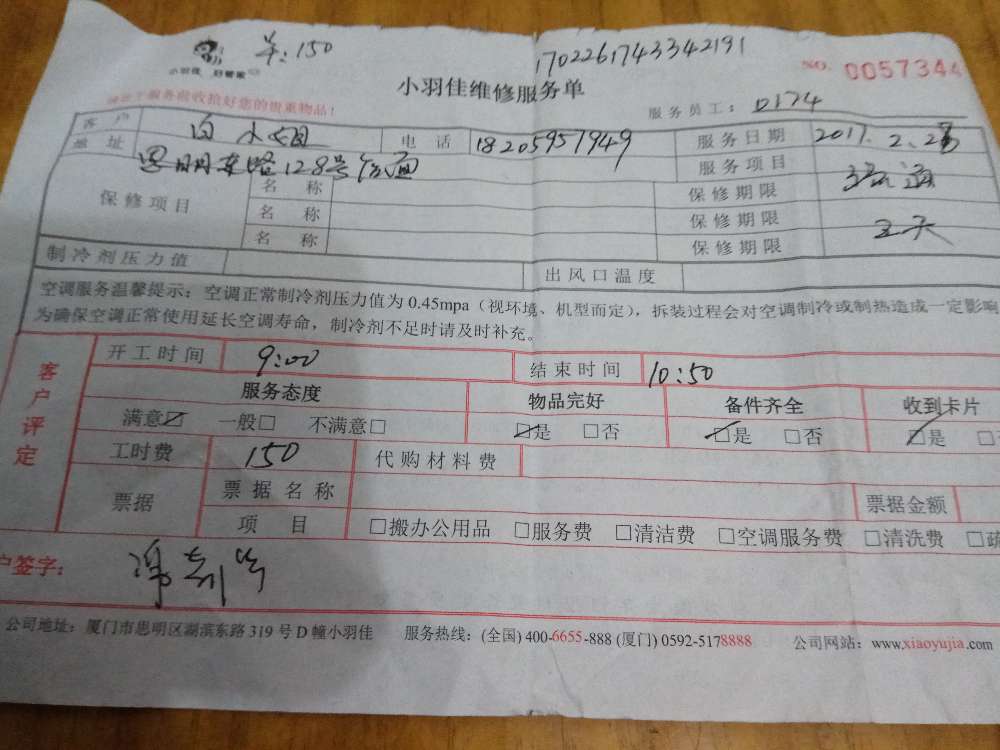 小羽佳 好管家
单:150
17022617433421​91
小羽佳维修服务单
NO. 0057344
服务员工: D174
客户 白小姐 电话 18205957949 服务日期 2017.2.28
地址 思明东路128号 服务项目 疏通
保修项目 名称 保修期限
名称 保修期限 五天
名称 保修期限
制冷剂压力值 出风口温度
空调服务温馨提示:空调正常制冷剂压力值为0.45mpa(视环境、机型而定),拆装过程会对空调制冷或制热造成一定影响
为确保空调正常使用延长空调寿命,制冷剂不足时请及时补充。
客户评定
开工时间 9:00 结束时间 10:50
服务态度 物品完好 备件齐全 收到卡片
满意☑ 一般□ 不满意□ ☑是 □否 ☑是 □否 ☑是 □
工时费 150 代购材料费
票据 票据名称 票据金额
项目 □搬办公用品 □服务费 □清洁费 □空调服务费 □清洗费 □疏
户签字:
公司地址:厦门市思明区湖滨东路319号D幢小羽佳 服务热线:(全国)400-6655-888(厦门)0592-5178888 公司网站:www.xiaoyujia.com